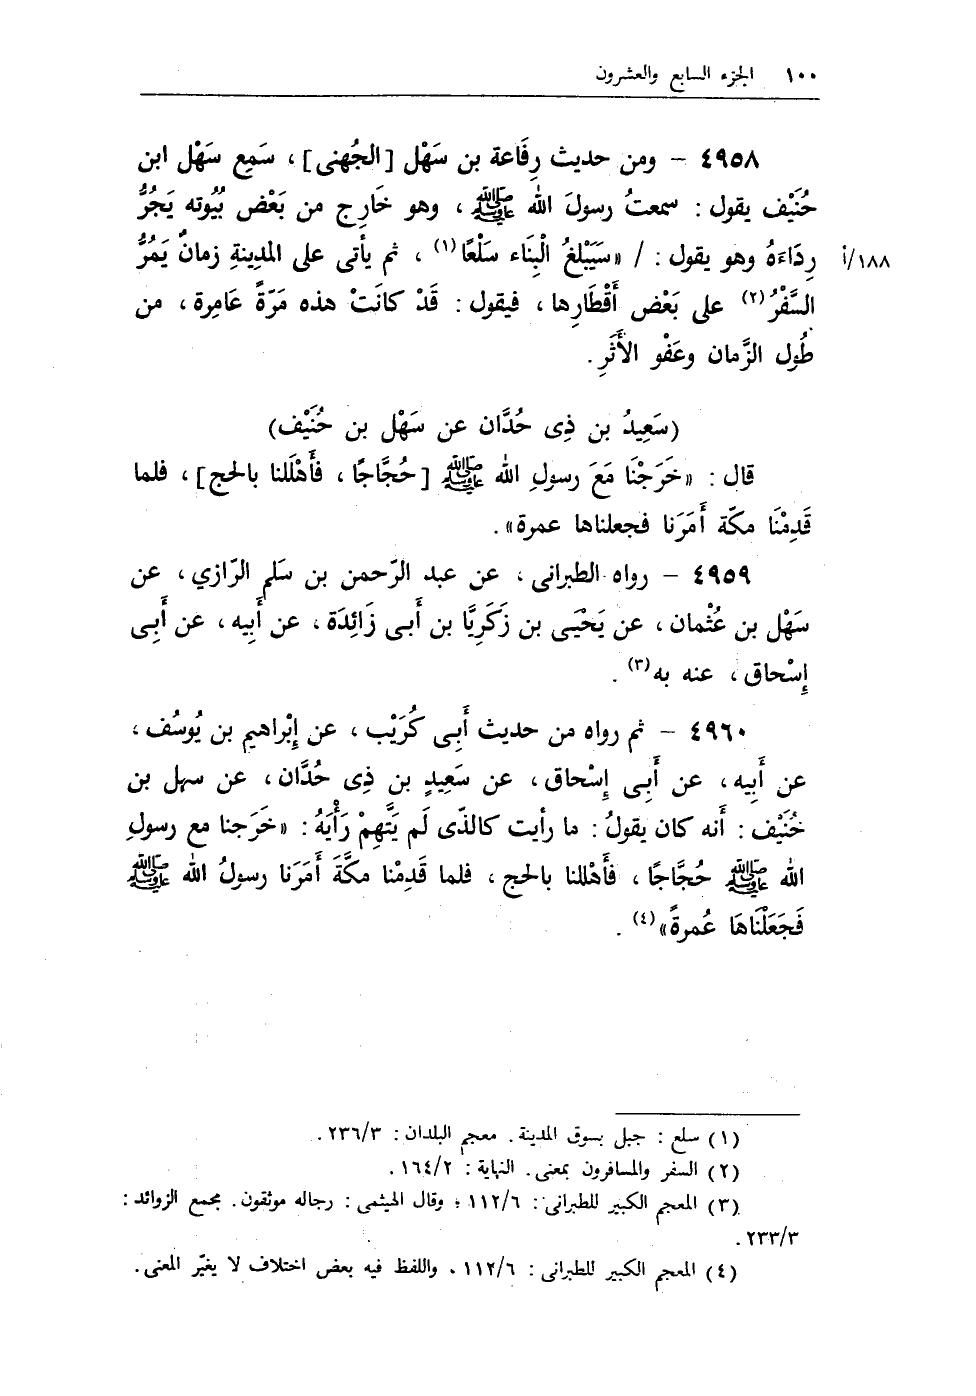 ١٠٠ الجزء السابع والعشرون
٤٩٥٨ – ومن حديث رِفَاعة بن سَهْل [الجُهنى] ، سَمِع سَهْل ابن
حُنَيْف يقول : سمعتُ رسولَ الله ﷺ ، وهو خَارِج من بَعْض بُيُوته يَجُرُّ
١٨٨/أ رِدَاءَهُ وهو يقول : / «سَيَبْلغُ الْبِنَاء سَلْعًا(١) ، ثم يأتى على المدِينةِ زمانٌ يَمُرُّ
السَّفْرُ(٢) على بَعْض أَقْطَارِها ، فيقول : قَدْ كانَتْ هذه مَرّةً عَامِرة ، من
طُول الزَّمان وعَفْو الأَثَرِ .
(سَعِيدُ بن ذِى حُدَّان عن سَهْل بن حُنَيْف)
قال : «خَرَجْنَا مَعَ رسولِ الله ﷺ [حُجَّاجًا ، فأَهْلَلنا بالحج] ، فلما
قَدِمْنَا مكّة أَمَرَنا فجعلناها عمرة» .
٤٩٥٩ – رواه الطبرانى ، عن عبد الرّحمن بن سَلم الرّازي ، عن
سَهْل بن عُثْمان ، عن يَحْيَى بن زَكَرِيَّا بن أَبى زَائِدَة ، عن أَبيه ، عن أَبِى
إِسْحاق ، عنه به(٣) .
٤٩٦٠ – ثم رواه من حديث أَبِى كُرَيْب ، عن إِبْراهيم بن يُوسُف ،
عن أَبِيه ، عن أَبِى إِسْحاق ، عن سَعِيدٍ بن ذِى حُدَّان ، عن سهل بن
حُنَيْف : أَنه كان يقولُ : ما رأيت كالذّى لَم يَتَّهِمْ رَأْيَهُ : «خَرَجنا مع رسولِ
الله ﷺ حُجَّاجًا ، فأَهْللنا بالحج ، فلما قَدِمْنا مكَّةَ أَمَرَنا رسولُ الله ﷺ
فَجَعَلْنَاهَا عُمرةً»(٤) .
(١) سلع : جبل بسوق المدينة . معجم البلدان : ٢٣٦/٣ .
(٢) السفر والمسافرون بمعنى . النهاية : ١٦٤/٢ .
(٣) المعجم الكبير للطبرانى : ١١٢/٦ ؛ وقال الهيثمى : رجاله موثقون . مجمع الزوائد :
٢٣٣/٣ .
(٤) المعجم الكبير للطبرانى : ١١٢/٦ . واللفظ فيه بعض اختلاف لا يغيّر المعنى .